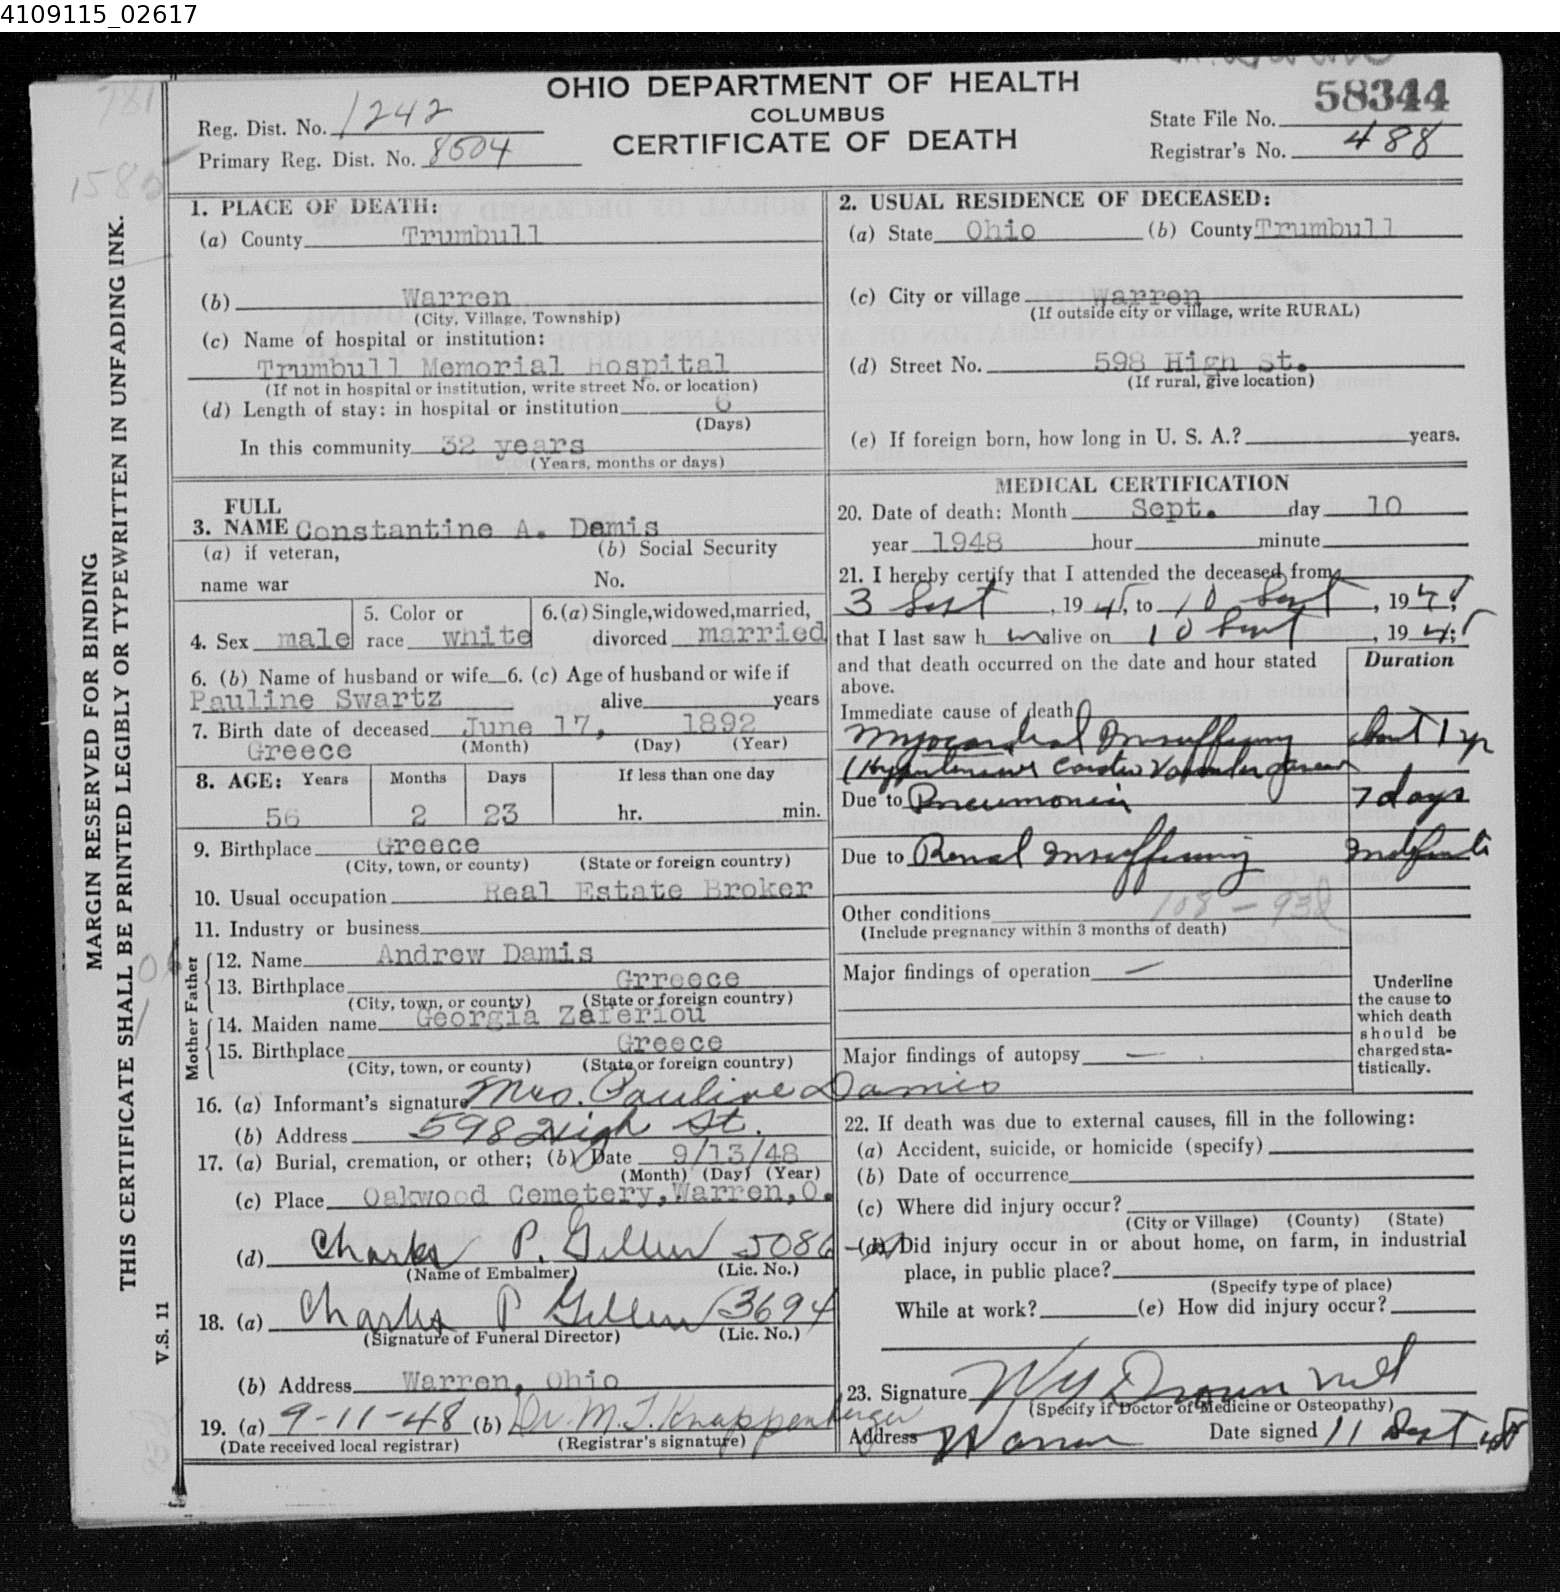 4109115_02617
OHIO DEPARTMENT OF HEALTH
COLUMBUS
CERTIFICATE OF DEATH
Reg. Dist. No. 1242
Primary Reg. Dist. No. 8504
State File No. 58344
Registrar's No. 488
MARGIN RESERVED FOR BINDING
THIS CERTIFICATE SHALL BE PRINTED LEGIBLY OR TYPEWRITTEN IN UNFADING INK.
V.S. 11
1. PLACE OF DEATH:
(a) County Trumbull
(b) Warren
(City, Village, Township)
(c) Name of hospital or institution:
Trumbull Memorial Hospital
(If not in hospital or institution, write street No. or location)
(d) Length of stay: in hospital or institution
(Days)
In this community 32 years
(Years, months or days)
2. USUAL RESIDENCE OF DECEASED:
(a) State Ohio (b) County Trumbull
(c) City or village Warren
(If outside city or village, write RURAL)
(d) Street No. 598 High St.
(If rural, give location)
(e) If foreign born, how long in U. S. A.? years.
FULL
3. NAME Constantine A. Damis
(a) if veteran, (b) Social Security
name war No.
4. Sex male 5. Color or race white 6.(a) Single, widowed, married, divorced married
6. (b) Name of husband or wife 6. (c) Age of husband or wife if
Pauline Swartz alive years
7. Birth date of deceased June 17, 1892
Greece (Month) (Day) (Year)
8. AGE: Years Months Days If less than one day
56 2 23 hr. min.
9. Birthplace Greece
(City, town, or county) (State or foreign country)
10. Usual occupation Real Estate Broker
11. Industry or business
Father
12. Name Andrew Damis
13. Birthplace Grreece
(City, town, or county) (State or foreign country)
Mother
14. Maiden name Georgia Zaferiou
15. Birthplace Greece
(City, town, or county) (State or foreign country)
16. (a) Informant's signature Mrs. Pauline Damis
(b) Address 598 High St.
17. (a) Burial, cremation, or other; (b) Date 9/13/48
(Month) (Day) (Year)
(c) Place Oakwood Cemetery, Warren, O.
(d) Charles P. Gillen 5086
(Name of Embalmer) (Lic. No.)
18. (a) Charles P Gillen 3694
(Signature of Funeral Director) (Lic. No.)
(b) Address Warren, Ohio
19. (a) 9-11-48 (b) Dr. M. T. Knappenberger
(Date received local registrar) (Registrar's signature)
MEDICAL CERTIFICATION
20. Date of death: Month Sept. day 10
year 1948 hour minute
21. I hereby certify that I attended the deceased from
3 Sept, 1948, to 10 Sept, 1948
that I last saw h im alive on 10 Sept, 1948
and that death occurred on the date and hour stated
above.
Duration
Immediate cause of death
Myocardial Insufficiency about 1 yr
(Hypertensive Cardio Vascular disease
Due to Pneumonia 7 days
Due to Renal Insufficiency Indefinite
Other conditions 108 - 93d
(Include pregnancy within 3 months of death)
Major findings of operation —
Major findings of autopsy —
Underline
the cause to
which death
should be
charged sta-
tistically.
22. If death was due to external causes, fill in the following:
(a) Accident, suicide, or homicide (specify)
(b) Date of occurrence
(c) Where did injury occur?
(City or Village) (County) (State)
(d) Did injury occur in or about home, on farm, in industrial
place, in public place?
(Specify type of place)
While at work? (e) How did injury occur?
23. Signature
(Specify if Doctor of Medicine or Osteopathy)
Address Warren Date signed 11 Sept 48